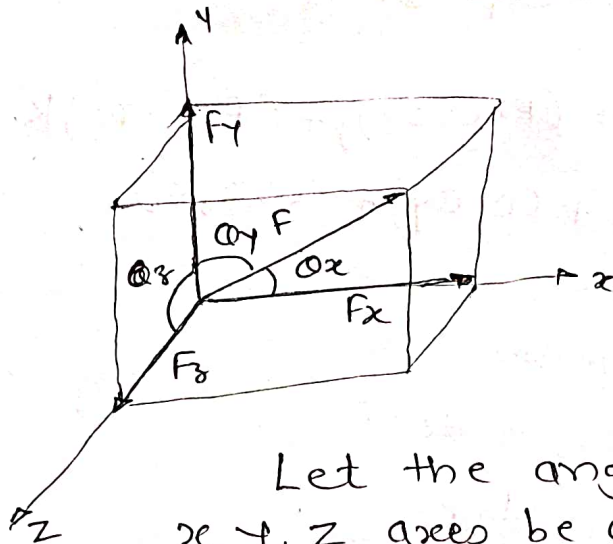 Y
Fy
θy F
θz θx
x
Fx
Fz
Let the ang
Z x Y, Z axes be